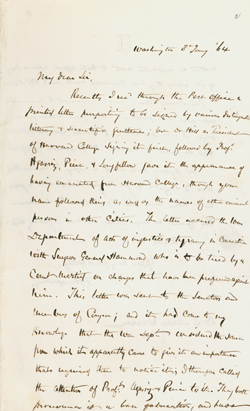 Washington 8' Jany '64
My Dear Sir,
Recently I rec'd through the Post Office a
printed letter purporting to be signed by various distinguished
literary & scientific gentlemen; but as Hill as President
of Harvard College signing it first, followed by Profs
Agassiz, Peirce, & Longfellow gave it the appearance of
having emanated from Harvard College, though your
name followed theirs, as well as the names of other eminent
persons in other Cities. The letter accused the War
Department of acts of injustice & tyranny in connection
with Surgeon General Hammond who is to be tried by a
Court Martial on charges that have been prepared against
him. This letter was sent to the Senators and
members of Congress; and it had come to my
knowledge that the War Dept. considered the source
from which it apparently came to give it an importance
that required them to notice it; I therefore called
the attention of Profs. Agassiz & Peirce to it. They both
pronounced it a base fabrication, and